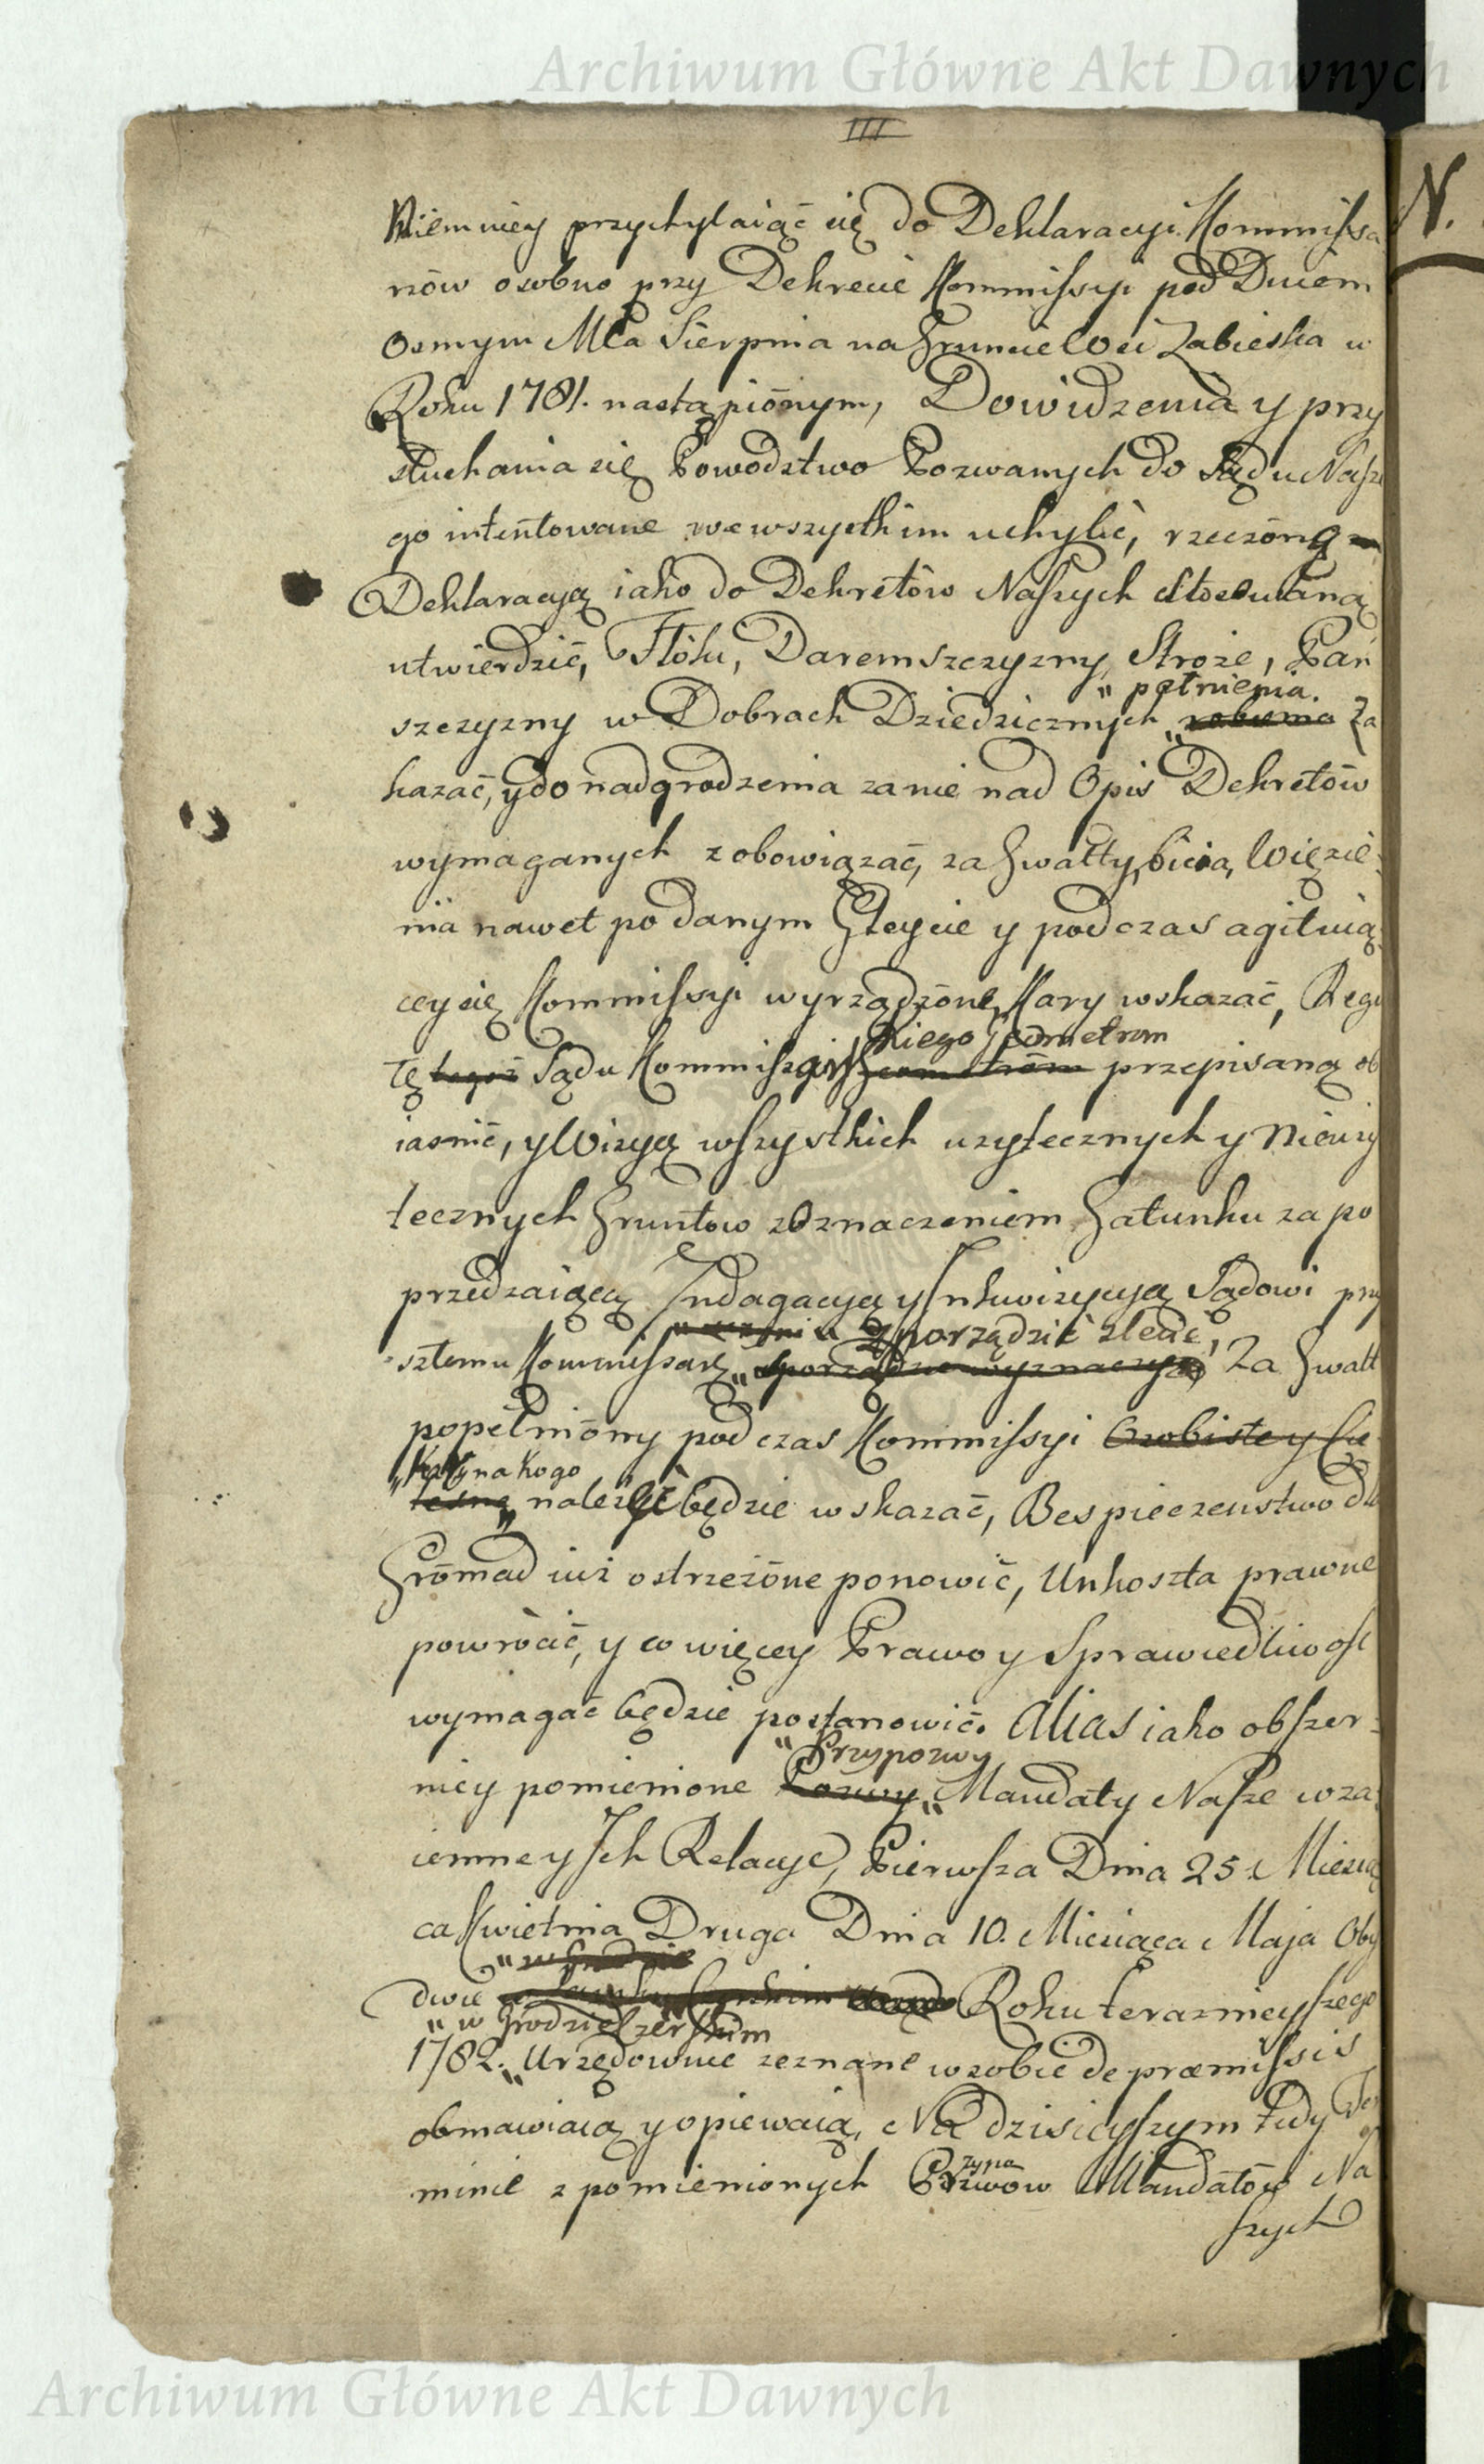 Archiwum Główne Akt Dawnych
III
N.
Niemniey przychylaiąc się do Deklaracyi Kommissa
rzów osobno przy Dekrecie Kommissyi pod Dniem
Osmym Mca Sierpnia na Gruncie Wsi Zabieśka w
Roku 1781. nastąpiónym, Dowidzenia y przy
słuchania się Powodztwo Pozwanych do Sądu Nasze
go intentowane we wszystkim uchylić, rzeczóną
Deklaracyą iako do Dekretów Naszych stosowaną
utwierdzić, Tłóku, Daremszczyzny, Stroże, Pań
" pełnienia.
szczyzny w Dobrach Dziedzicznych " robienia Za
kazać, y do nadgrodzenia za nie nad Opis Dekretów
wymaganych zobowiązać, za Gwałty, bicia, Więzie
nia nawet po danym Gleycie y podczas agituią
cey się Kommissyi wyrządzóne, Kary wskazać, Regu
skiego Jeometrom
łę tegoż Sądu Kommissyi Geometróm przepisaną ob
iasnić, y Wizyą wszystkich uzytecznych y Nieuzy
tecznych Gruntow z Oznaczeniem Gatunku za po
przedzaiącą Indagacyą y Inkwizycyą Sądowi przy
zporządzić zlecić,
szłemu Kommissarz. " Za Gwałt
popełnióny podczas Kommissyi Osobistey Cie
" Karę na kogo
lesną " nalezeć będzie wskazać, Bespieczenstwo dla
Grómad iuż ostrzeżóne ponowić, Unkoszta prawne
powrócić, y co więcey Prawo y Sprawiedliwość
wymagać będzie postanowić. Alias iako obszer
" Przypozwy
niey pomienione Pozwy " Mandaty Nasze wza
iemne y Ich Relacye, Pierwsza Dnia 25. Miesią
ca Kwietnia Druga Dnia 10. Miesiąca Maja Oby
" w Grodzie
dwie Roku terazniejszego
" w Grodzie Czerskim
1782. " Urzędownie zeznane w sobie de præmissis
obmawiaią y opiewaią, Na dzisieyszym tedy Ter
zypo
minie z pomienionych Pozwow Mandatów Na
szych
Archiwum Główne Akt Dawnych